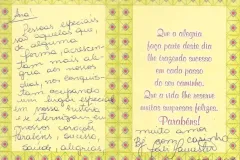 Ana!
Pessoas especiais
são aquelas que,
de alguma
forma, acrescen-
tam mais ale-
gria aos nossos
dias, nos conquis-
tam, ocupando
um lugar especial
em nossa
e se eternizam em
nossos corações.
Parabéns, sucesso,
saúde, alegrias,
Que a alegria
faça parte deste dia
lhe trazendo sucesso
em cada passo
do seu caminho.
Que a vida lhe reserve
muitas surpresas felizes.
Parabéns!
muito amor
com carinho